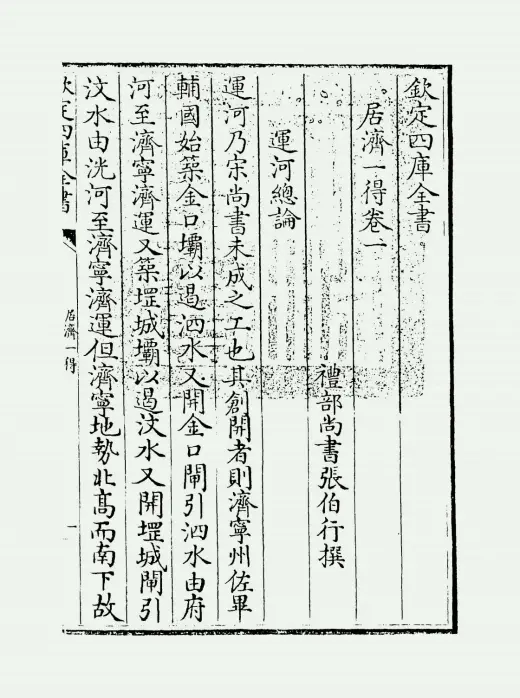 欽定四庫全書
居濟一得卷一
禮部尚書張伯行撰
運河總論
運河乃宋尚書未成之工也其創開者則濟寧州佐畢
輔國始築金口壩以遏泗水又開金口閘引泗水由府
河至濟寧濟運又築堽城壩以遏汶水又開堽城閘引
汶水由洸河至濟寧濟運但濟寧地勢北高而南下故
欽定四庫全書
居濟一得
一